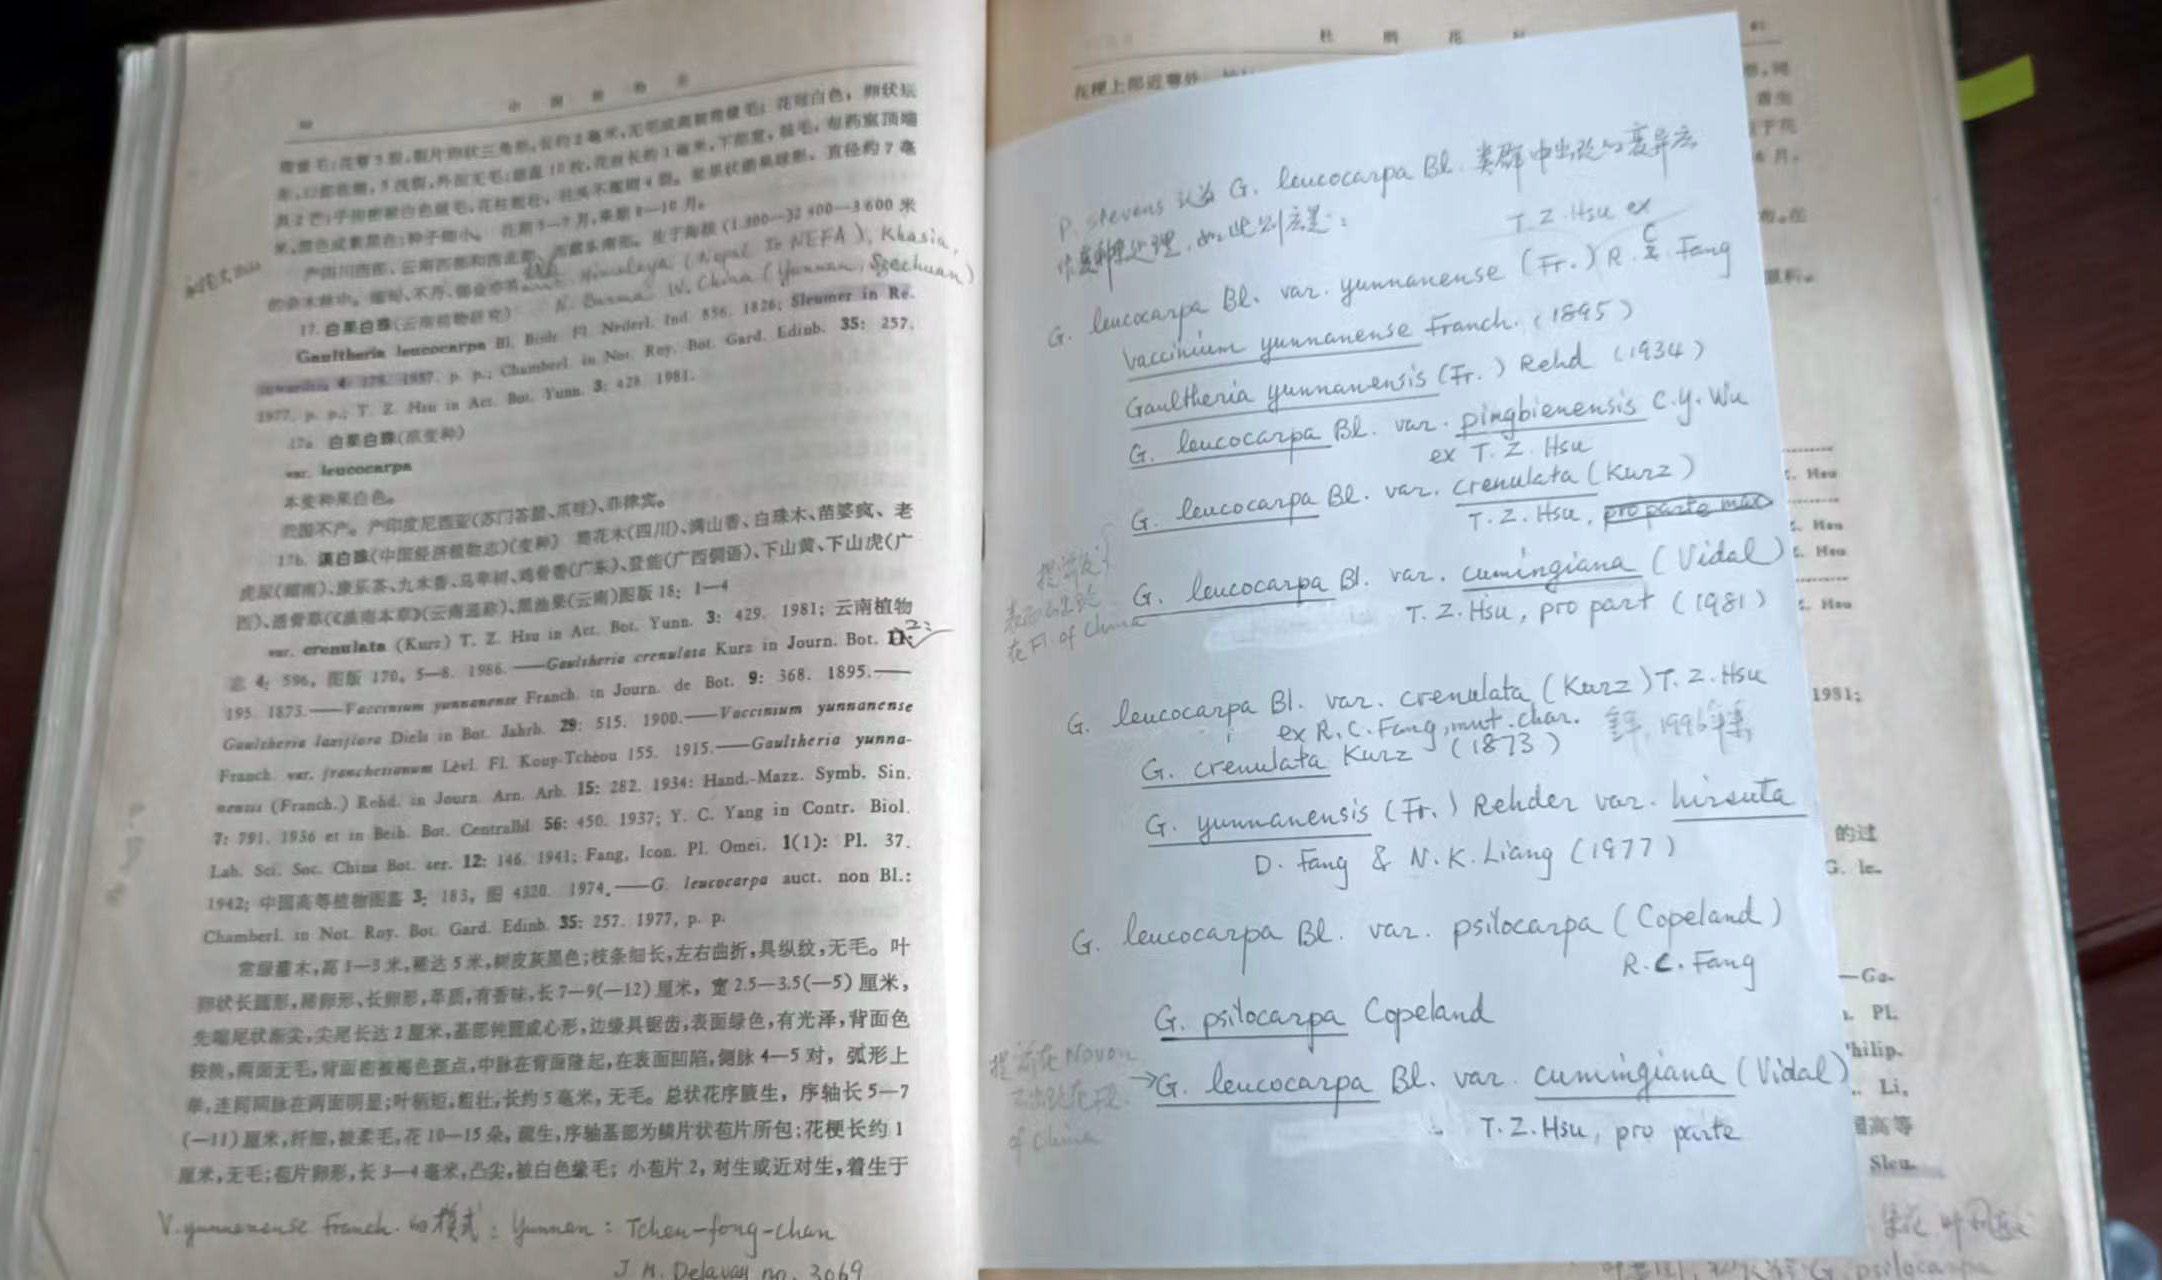 中国植物志
杜鹃花
毫米,口部收缩,5浅裂,外面无毛;雄蕊10枚,花丝长约1毫米,下部宽,被毛,每药室顶端
具2芒;子房密被白色绒毛,花柱粗壮,柱头不
米,黑色或紫黑色;种子细小。花期5—7月,果期8—10月。
产四川西部、云南西部和西北部、西藏东南部。生于海拔
Himalaya (Nepal to NEFA), Khasia,
N. Burma W. China (Yunnan, Szechuan)
17. 白果白珠(云南植物研究)
Gaultheria leucocarpa Bl. Bijdr. Fl. Nederl. Ind. 856. 1826; Sleumer in Re-
inwardtia 4: 179. 1957. p. p.; Chamberl. in Not. Roy. Bot. Gard. Edinb. 35: 257.
1977. p. p.; T. Z. Hsu in Act. Bot. Yunn. 3: 428. 1981.
17a. 白果白珠(原变种)
var. leucocarpa
本变种果白色。
我国不产。产印度尼西亚(苏门答腊、爪哇)、菲律宾。
17b. 滇白珠(中国经济植物志)(变种) 筒花木(四川)、满山香、白珠木、苗婆疯、老
虎尿(湖南)、康乐茶、九木香、马牵树、鸡骨香(广东)、登能(广西侗语)、下山黄、下山虎(广
西)、透骨草(《滇南本草》(云南通称)、黑油果(云南)图版18: 1—4
var. crenulata (Kurz) T. Z. Hsu in Act. Bot. Yunn. 3: 429. 1981; 云南植物
志 4: 596, 图版 170, 5—8. 1986.——Gaultheria crenulata Kurz in Journ. Bot. 11:
195. 1873.——Vaccinium yunnanense Franch. in Journ. de Bot. 9: 368. 1895.——
Gaultheria laxiflora Diels in Bot. Jahrb. 29: 515. 1900.——Vaccinium yunnanense
Franch. var. franchetianum Lévl. Fl. Kouy-Tchéou 155. 1915.——Gaultheria yunna-
nensis (Franch.) Rehd. in Journ. Arn. Arb. 15: 282. 1934; Hand.-Mazz. Symb. Sin.
7: 791. 1936 et in Beih. Bot. Centralbl. 56: 450. 1937; Y. C. Yang in Contr. Biol.
Lab. Sci. Soc. China Bot. ser. 12: 146. 1941; Fang, Icon. Pl. Omei. 1(1): Pl. 37.
1942; 中国高等植物图鉴 3: 183, 图 4320. 1974.——G. leucocarpa auct. non Bl.:
Chamberl. in Not. Roy. Bot. Gard. Edinb. 35: 257. 1977, p. p.
常绿灌木,高1—3米,稀达5米,树皮灰黑色;枝条细长,左右曲折,具纵纹,无毛。叶
卵状长圆形,稀卵形、长卵形,革质,有香味,长7—9(—12)厘米,宽2.5—3.5(—5)厘米,
先端尾状渐尖,尖尾长达2厘米,基部钝圆或心形,边缘具锯齿,表面绿色,有光泽,背面色
较淡,两面无毛,背面密被褐色斑点,中脉在背面隆起,在表面凹陷,侧脉4—5对,弧形上
举,连同网脉在两面明显;叶柄短,粗壮,长约5毫米,无毛。总状花序腋生,序轴长5—7
(—11)厘米,纤细,被柔毛,花10—15朵,疏生,序轴基部为鳞片状苞片所包;花梗长约1
厘米,无毛;苞片卵形,长3—4毫米,凸尖,被白色缘毛;小苞片2,对生或近对生,着生于
V. yunnanense Franch. 的模式: Yunnan: Tchen-fong-chan
J. M. Delavay no. 3069
P. Stevens 认为 G. leucocarpa Bl. 类群中出现的变异应
作变种处理,如此则应是:
T. Z. Hsu ex
G. leucocarpa Bl. var. yunnanense (Fr.) R. C. Fang
Vaccinium yunnanense Franch. (1895)
Gaultheria yunnanensis (Fr.) Rehd (1934)
G. leucocarpa Bl. var. pingbienensis C.Y. Wu
ex T. Z. Hsu
G. leucocarpa Bl. var. crenulata (Kurz)
T. Z. Hsu, pro parte max
G. leucocarpa Bl. var. cumingiana (Vidal)
T. Z. Hsu, pro part (1981)
在Fl. of China
G. leucocarpa Bl. var. crenulata (Kurz) T. Z. Hsu
ex R. C. Fang, mut. char.
G. crenulata Kurz (1873)
G. yunnanensis (Fr.) Rehder var. hirsuta
D. Fang & N. K. Liang (1977)
G. leucocarpa Bl. var. psilocarpa (Copeland)
R. C. Fang
G. psilocarpa Copeland
→G. leucocarpa Bl. var. cumingiana (Vidal)
T. Z. Hsu, pro parte
Novon
of China
Hsu
Hsu
Hsu
Hsu
1981;
的过
G. le-
—Ga-
Pl.
Philip.
Li,
高等
Sleu-
G. psilocarpa